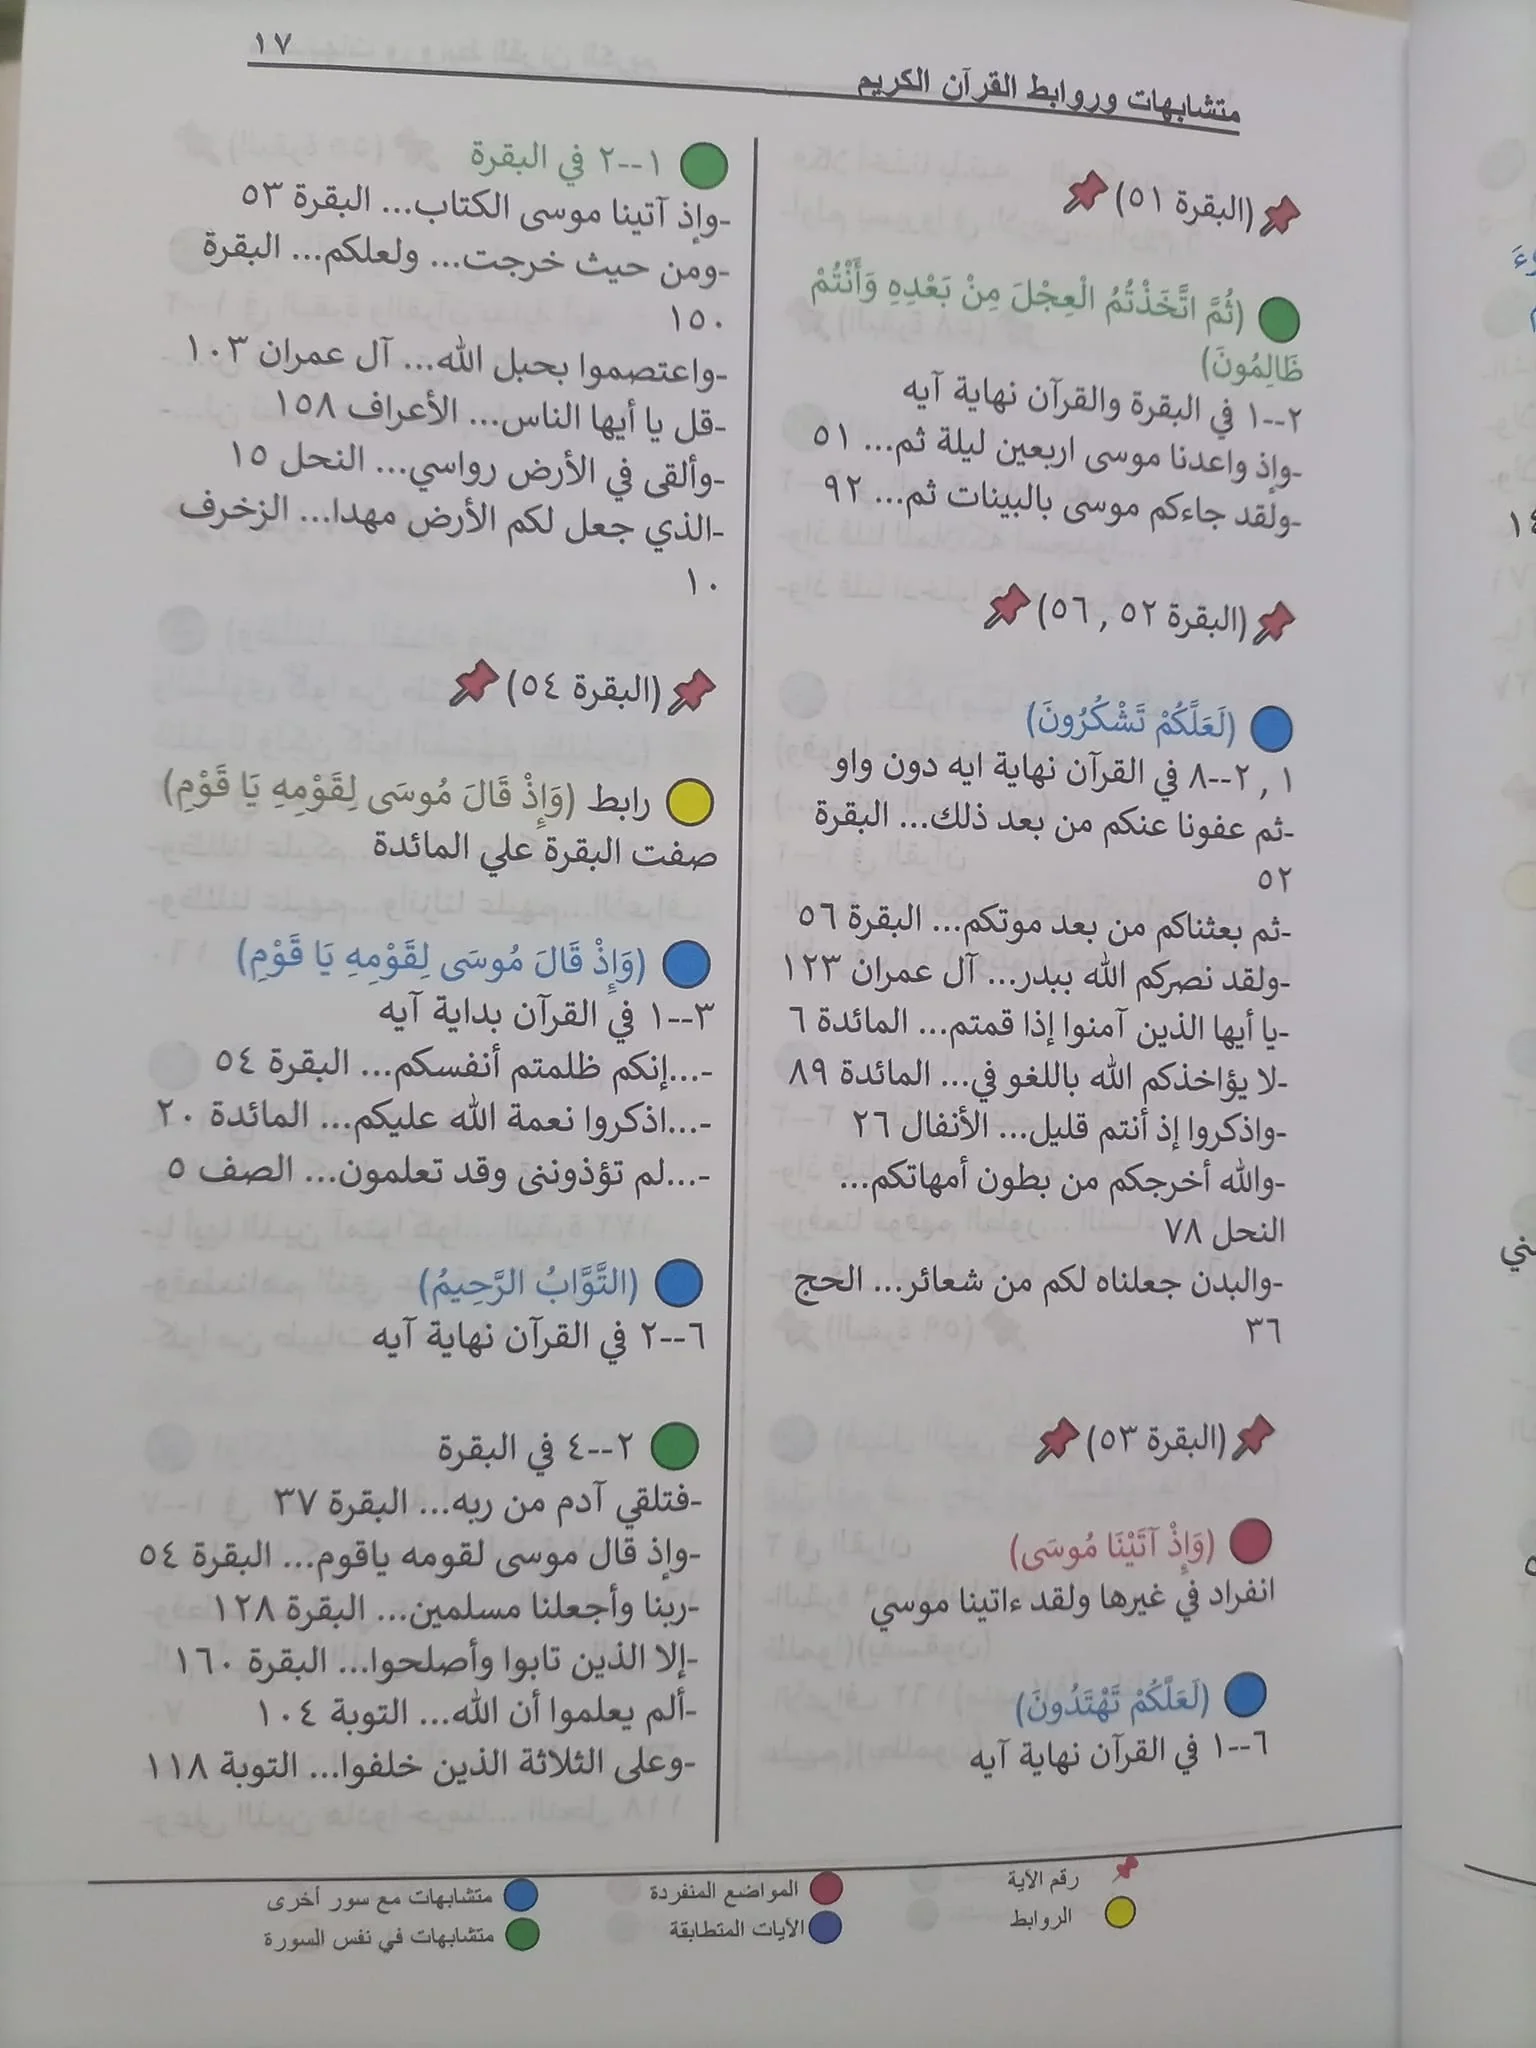 متشابهات وروابط القرآن الكريم
١٧
(البقرة ٥١)
(ثُمَّ اتَّخَذْتُمُ الْعِجْلَ مِنْ بَعْدِهِ وَأَنْتُمْ
ظَالِمُونَ)
٢--١ في البقرة والقرآن نهاية آيه
-وإذ واعدنا موسى اربعين ليلة ثم... ٥١
-ولقد جاءكم موسى بالبينات ثم... ٩٢
(البقرة ٥٢ , ٥٦)
(لَعَلَّكُمْ تَشْكُرُونَ)
١ , ٢--٨ في القرآن نهاية ايه دون واو
-ثم عفونا عنكم من بعد ذلك... البقرة
٥٢
-ثم بعثناكم من بعد موتكم... البقرة ٥٦
-ولقد نصركم الله ببدر... آل عمران ١٢٣
-يا أيها الذين آمنوا إذا قمتم... المائدة ٦
-لا يؤاخذكم الله باللغو في... المائدة ٨٩
-واذكروا إذ أنتم قليل... الأنفال ٢٦
-والله أخرجكم من بطون أمهاتكم...
النحل ٧٨
-والبدن جعلناه لكم من شعائر... الحج
٣٦
(البقرة ٥٣)
(وَإِذْ آتَيْنَا مُوسَى)
انفراد في غيرها ولقد ءاتينا موسي
(لَعَلَّكُمْ تَهْتَدُونَ)
٦--١ في القرآن نهاية آيه
١--٢ في البقرة
-وإذ آتينا موسى الكتاب... البقرة ٥٣
-ومن حيث خرجت... ولعلكم... البقرة
١٥٠
-واعتصموا بحبل الله... آل عمران ١٠٣
-قل يا أيها الناس... الأعراف ١٥٨
-وألقى في الأرض رواسي... النحل ١٥
-الذي جعل لكم الأرض مهدا... الزخرف
١٠
(البقرة ٥٤)
رابط (وَإِذْ قَالَ مُوسَى لِقَوْمِهِ يَا قَوْمِ)
صفت البقرة علي المائدة
(وَإِذْ قَالَ مُوسَى لِقَوْمِهِ يَا قَوْمِ)
٣--١ في القرآن بداية آيه
-...إنكم ظلمتم أنفسكم... البقرة ٥٤
-...اذكروا نعمة الله عليكم... المائدة ٢٠
-...لم تؤذوننى وقد تعلمون... الصف ٥
(التَّوَّابُ الرَّحِيمُ)
٦--٢ في القرآن نهاية آيه
٢--٤ في البقرة
-فتلقي آدم من ربه... البقرة ٣٧
-وإذ قال موسى لقومه ياقوم... البقرة ٥٤
-ربنا وأجعلنا مسلمين... البقرة ١٢٨
-إلا الذين تابوا وأصلحوا... البقرة ١٦٠
-ألم يعلموا أن الله... التوبة ١٠٤
-وعلى الثلاثة الذين خلفوا... التوبة ١١٨
رقم الآية
الروابط
المواضع المنفردة
الآيات المتطابقة
متشابهات مع سور أخرى
متشابهات في نفس السورة